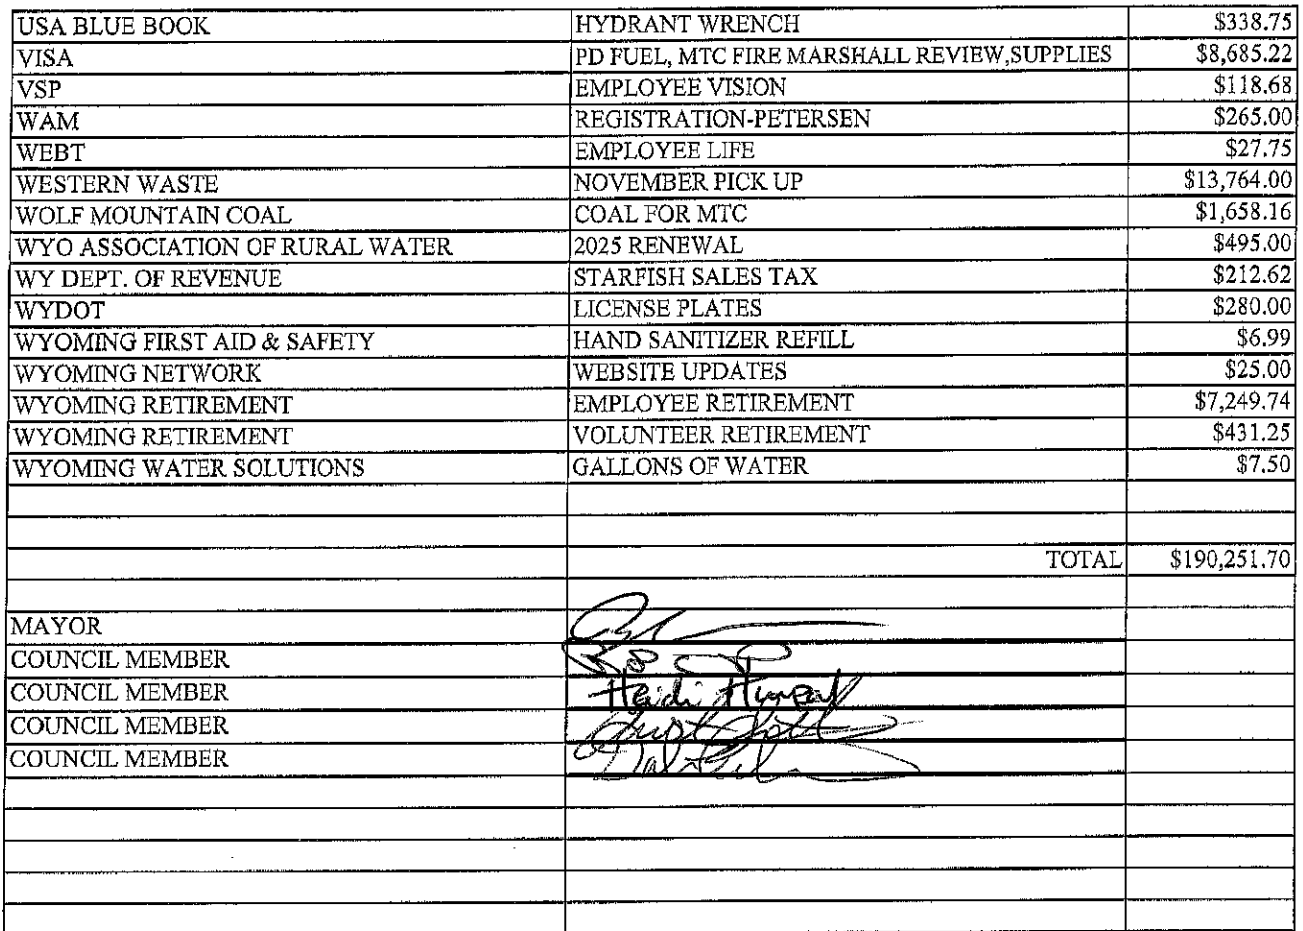 USA BLUE BOOK HYDRANT WRENCH $338.75
VISA PD FUEL, MTC FIRE MARSHALL REVIEW,SUPPLIES $8,685.22
VSP EMPLOYEE VISION $118.68
WAM REGISTRATION-PETERSEN $265.00
WEBT EMPLOYEE LIFE $27.75
WESTERN WASTE NOVEMBER PICK UP $13,764.00
WOLF MOUNTAIN COAL COAL FOR MTC $1,658.16
WYO ASSOCIATION OF RURAL WATER 2025 RENEWAL $495.00
WY DEPT. OF REVENUE STARFISH SALES TAX $212.62
WYDOT LICENSE PLATES $280.00
WYOMING FIRST AID & SAFETY HAND SANITIZER REFILL $6.99
WYOMING NETWORK WEBSITE UPDATES $25.00
WYOMING RETIREMENT EMPLOYEE RETIREMENT $7,249.74
WYOMING RETIREMENT VOLUNTEER RETIREMENT $431.25
WYOMING WATER SOLUTIONS GALLONS OF WATER $7.50
TOTAL $190,251.70
MAYOR
COUNCIL MEMBER
COUNCIL MEMBER Heidi
COUNCIL MEMBER
COUNCIL MEMBER